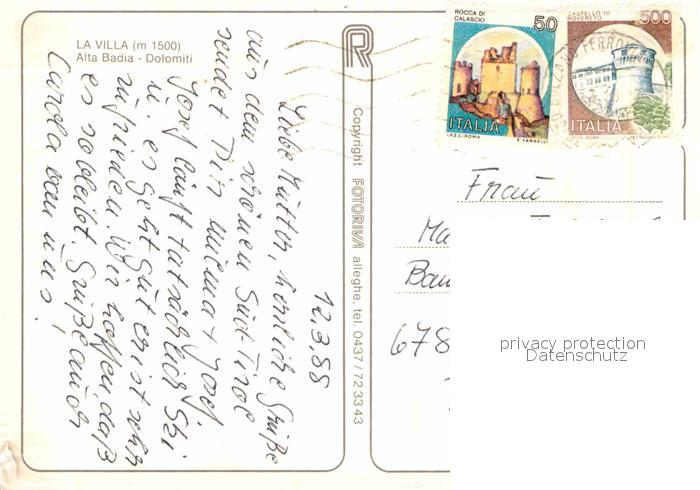 LA VILLA (m 1500)
Alta Badia - Dolomiti
12.3.88
Liebe Mutter, herzliche Grüße
aus dem schönen Süd Tirol
sendet Dir Michael + Josef.
Josef läuft tatsächlich Ski
u. es geht gut er ist sehr
zufrieden. Wir hoffen, daß
es so bleibt. Grüße auch
Carola von uns!
R
Copyright FOTORIVA alleghe. tel. 0437/723343
ROCCA DI
CALASCIO
50
ITALIA
I.P.Z.S.-ROMA E. VANGELLI
CASTELLO DI
ROVERETO
500
ITALIA
Frau
Ma
Bau
678
privacy protection
Datenschutz